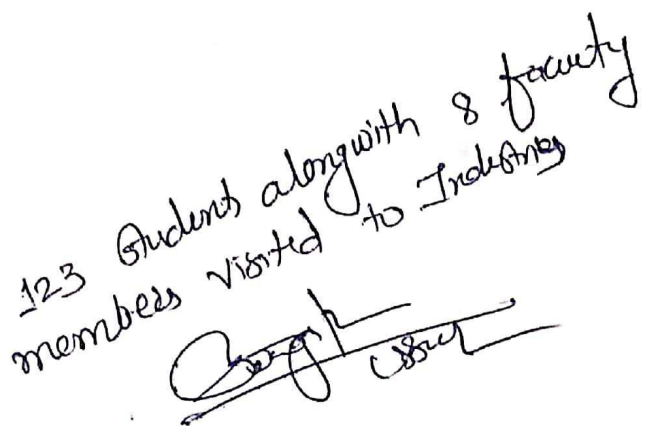 123 Students alongwith 8 faculty
members visited to Industries